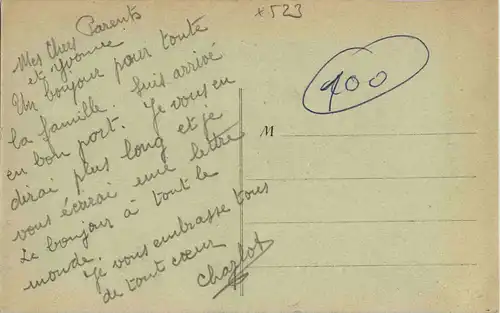 *523
Mes Chers Parents
et Yvonne
Un bonjour pour toute
la famille. Suis arrivé
en bon port. Je vous en
dirai plus long et je
vous écrirai une lettre
Le bonjour à tout le
monde.
Je vous embrasse tous
de tout cœur
Charlot
100
M